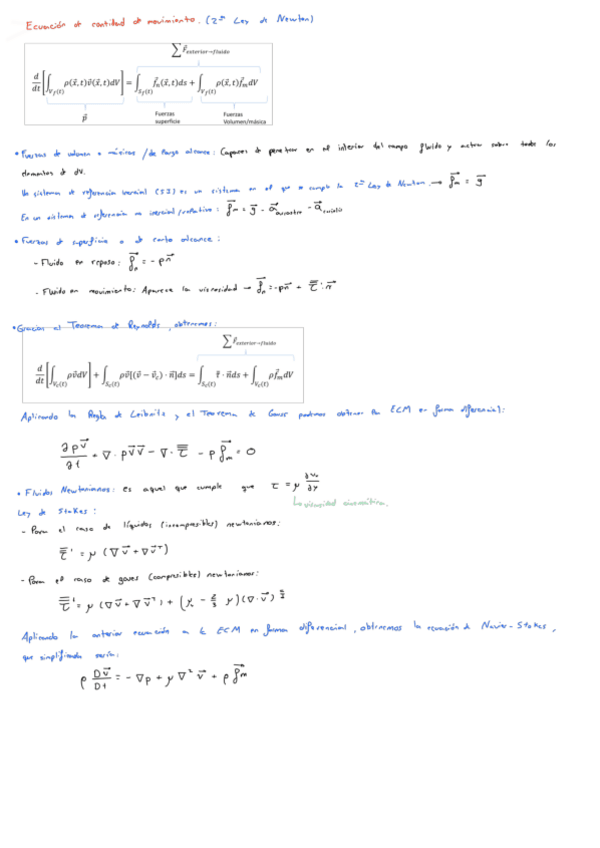 Ecuación de cantidad de movimiento. (2ª Ley de Newton)
∑ F⃗exterior→fluido
d/dt [∫Vf(t) ρ(x⃗,t)v⃗(x⃗,t)dV] = ∫Sf(t) f⃗n(x⃗,t)ds + ∫Vf(t) ρ(x⃗,t)f⃗m dV
p⃗ Fuerzas superficie Fuerzas Volumen/másica
• Fuerzas de volumen o másicas /de largo alcance: Capaces de penetrar en el interior del campo fluido y actuar sobre todos los
elementos de dV.
Un sistema de referencia inercial (SI) es un sistema en el que se cumple la 2ª Ley de Newton. → f⃗m = g⃗
En un sistema de referencia no inercial/relativo: f⃗m = g⃗ - a⃗arrastre - a⃗coriolis
• Fuerzas de superficie o de corto alcance:
- Fluido en reposo: f⃗n = - pn⃗
- Fluido en movimiento: Aparece la viscosidad → f⃗n = -pn⃗ + τ̿'·n⃗
• Gracias al Teorema de Reynolds, obtenemos:
∑ F⃗exterior→fluido
d/dt [∫Vc(t) ρv⃗dV] + ∫Sc(t) ρv⃗[(v⃗ - v⃗c) · n⃗]ds = ∫Sc(t) τ̿ · n⃗ds + ∫Vc(t) ρf⃗m dV
Aplicando la Regla de Leibnitz y el Teorema de Gauss podemos obtener la ECM en forma diferencial:
∂ρv⃗/∂t + ∇· ρv⃗v⃗ - ∇· τ̿ - ρf⃗m = 0
• Fluidos Newtonianos: es aquel que cumple que τ = μ ∂vx/∂y
↳ viscosidad cinemática.
Ley de Stokes:
- Para el caso de líquidos (incompresibles) newtonianos:
τ̿' = μ (∇v⃗ + ∇v⃗ᵀ)
- Para el caso de gases (compresibles) newtonianos:
τ̿' = μ (∇v⃗ + ∇v⃗ᵀ) + (μv - 2/3 μ)(∇·v⃗)
Aplicando la anterior ecuación a la ECM en forma diferencial, obtenemos la ecuación de Navier-Stokes,
que simplificada sería:
ρ Dv⃗/Dt = - ∇p + μ∇²v⃗ + ρf⃗m